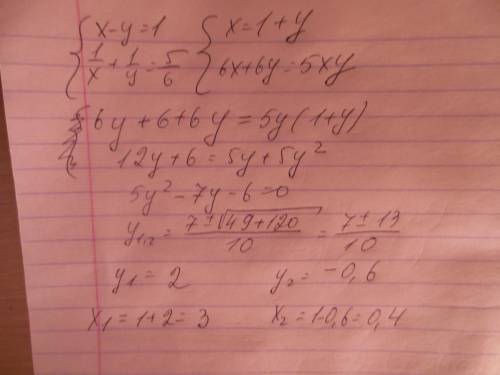 { x-y=1 { x=1+y
{ 1/x + 1/y = 5/6 { 6x+6y=5xy
6y+6+6y=5y(1+y)
12y+6=5y+5y²
5y²-7y-6=0
y₁,₂ = (7±√(49+120))/10 = (7±13)/10
y₁=2 y₂=-0,6
x₁=1+2=3 x₂=1-0,6=0,4